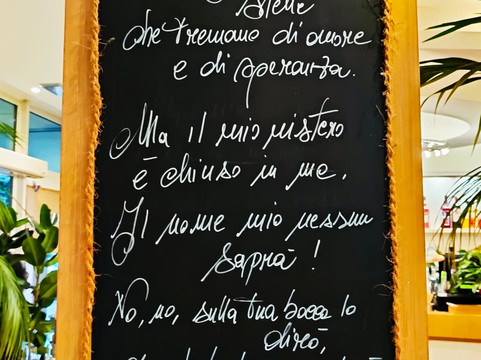 stelle
che tremano di amore
e di speranza.
Ma il mio mistero
è chiuso in me.
Il nome mio nessun
saprà!
No, no, sulla tua bocca lo
dirò,